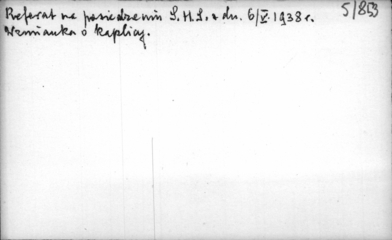 Referat na posiedzeniu S.H.S. w dn. 6/V.1938 r. 5/853
Wzmianka o kaplicy.